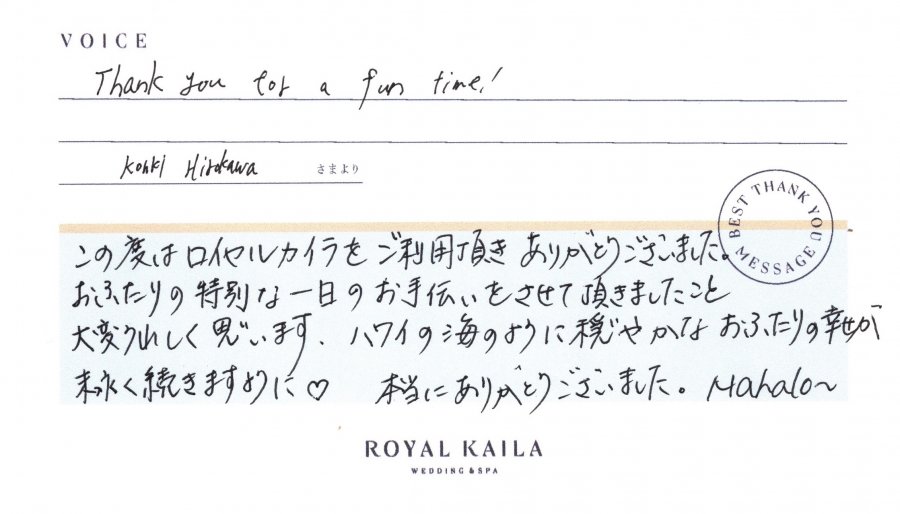 VOICE
Thank you for a fun time!
Kohki Hirokawa さまより
BEST THANK YOU MESSAGE
この度はロイヤルカイラをご利用頂き ありがとうございました。
おふたりの特別な一日のお手伝いをさせて頂きましたこと
大変うれしく思います、ハワイの海のように穏やかな おふたりの幸せが
末永く続きますように♡ 本当にありがとうございました。 Mahalo~
ROYAL KAILA
WEDDING & SPA